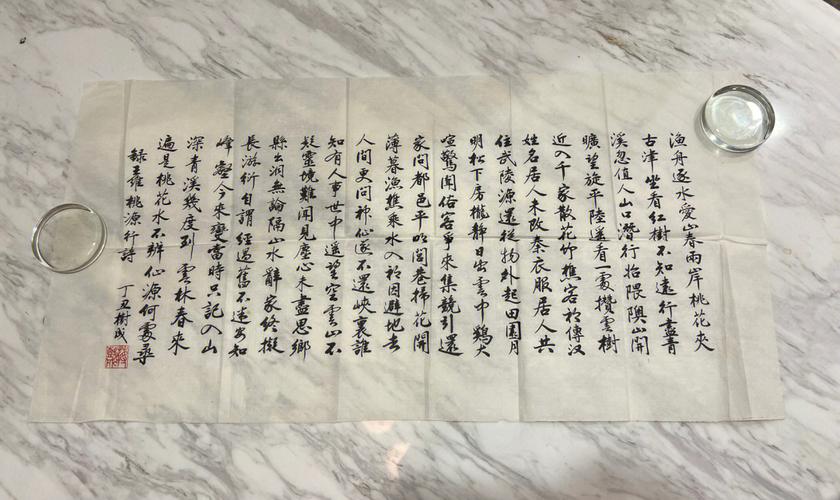 漁舟逐水愛山春兩岸桃花夾
古津坐看紅樹不知遠行盡青
溪忽值人山口潛行始隈隩山開
曠望旋平陸遙看一處攢雲樹
近入千家散花竹樵客初傳汉
姓名居人未改秦衣服居人共
住武陵源還從物外起田園月
明松下房櫳靜日出雲中鷄犬
喧驚聞俗客爭來集競引還
家問都邑平明閭巷掃花開
薄暮漁樵乘水入初因避地去
人間更問神仙遂不還峽裏誰
知有人事世中遙望空雲山不
疑靈境難聞見塵心未盡思鄉
縣出洞無論隔山水辭家終擬
長游衍自謂經過舊不迷安知
峰壑今來變當時只記入山
深青溪幾度到雲林春來
遍是桃花水不辨仙源何處尋
錄王維桃源行詩 丁丑樹成